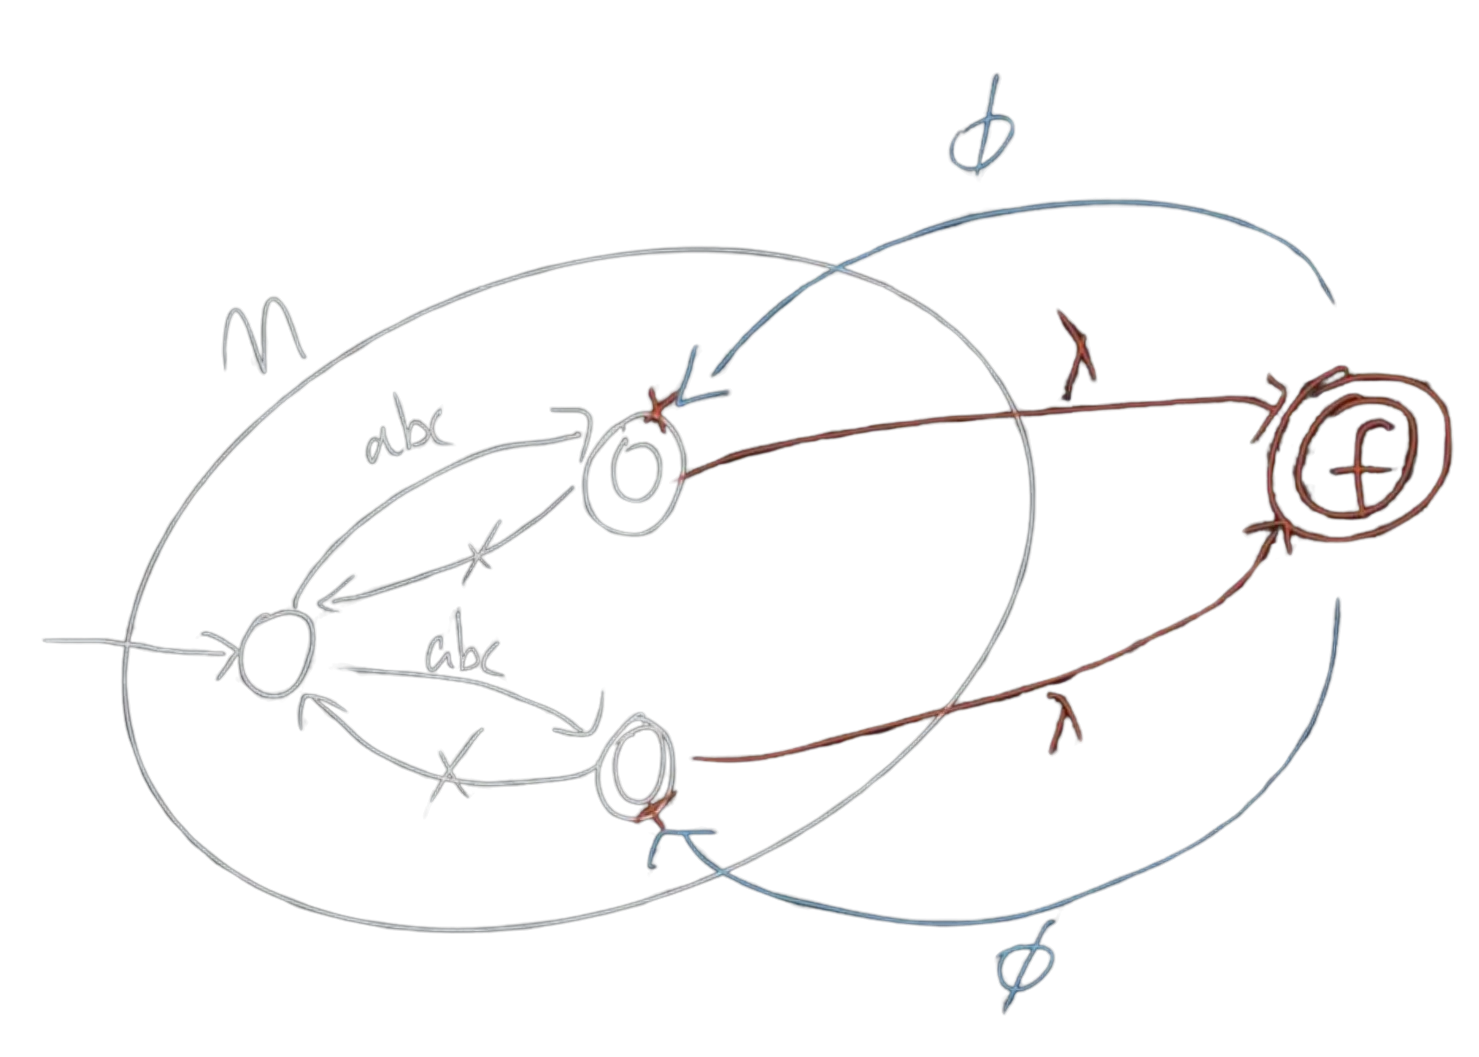 ϕ
λ
n
abc
f
x
abc
λ
x
ϕ